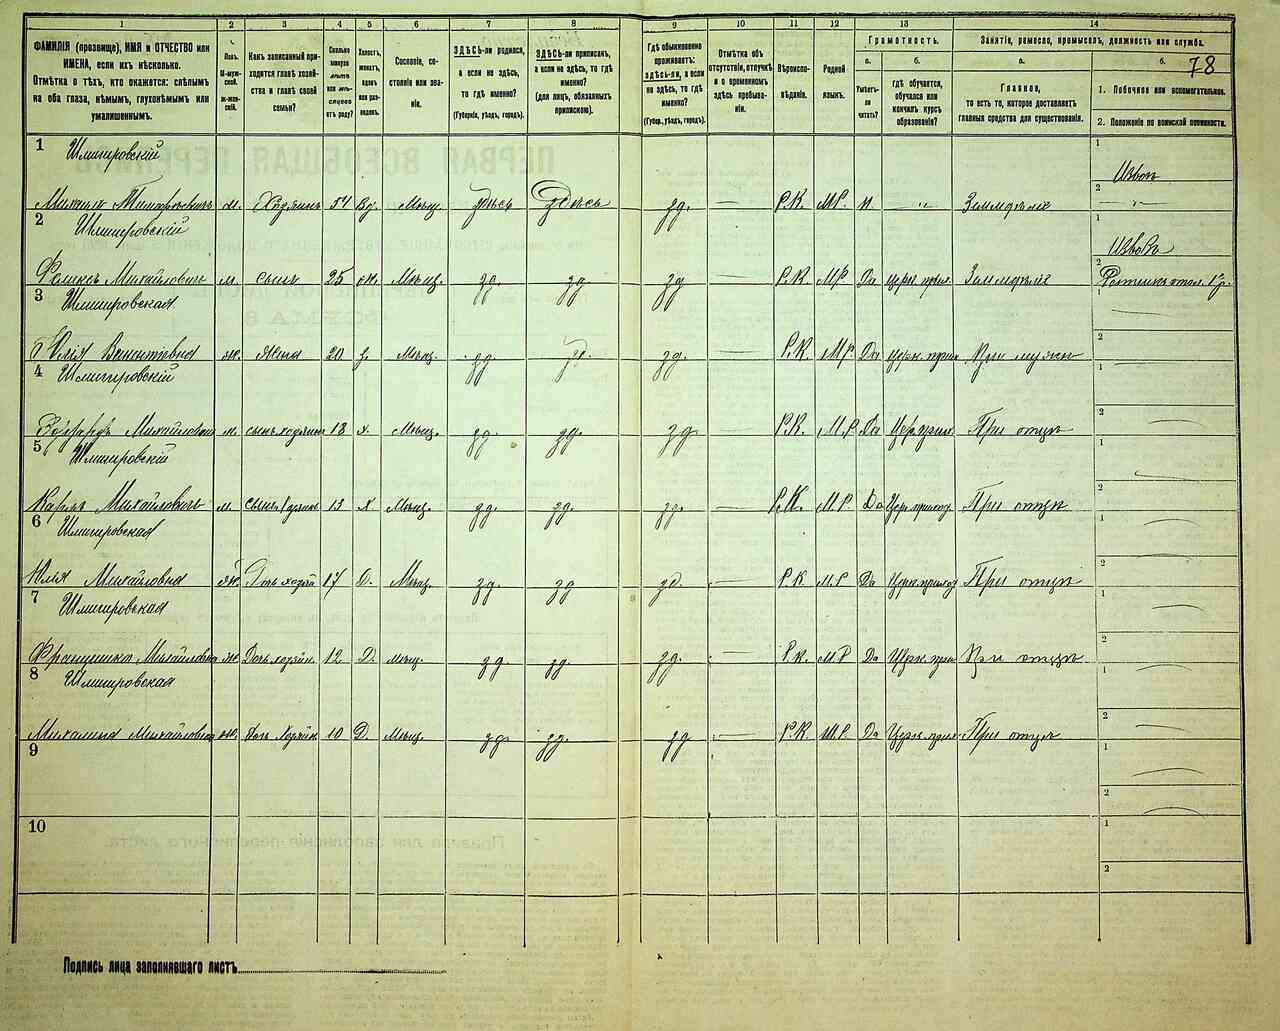 1 2 3 4 5 6 7 8 9 10 11 12 13 14
78
ФАМИЛІЯ (прозвище), ИМЯ и ОТЧЕСТВО или
ИМЕНА, если ихъ нѣсколько.
Отмѣтка о тѣхъ, кто окажется: слѣпымъ
на оба глаза, нѣмымъ, глухонѣмымъ или
умалишеннымъ.
Полъ.
М-муж-
ской.
Ж-жен-
скій.
Какъ записанный при-
ходится главѣ хозяй-
ства и главѣ своей
семьи?
Сколько
минуло
лѣтъ
или мѣ-
сяцевъ
отъ роду?
Холостъ,
женатъ,
вдовъ
или раз-
веденъ.
Сословіе, со-
стояніе или зва-
ніе.
ЗДѢСЬ-ли родился,
а если не здѣсь,
то гдѣ именно?
(Губернія, уѣздъ, городъ).
ЗДѢСЬ-ли приписанъ,
а если не здѣсь, то гдѣ
именно?
(для лицъ, обязанныхъ
припискою).
Гдѣ обыкновенно
проживаетъ:
здѣсь-ли, а если
не здѣсь, то гдѣ
именно?
(Губер., уѣздъ, городъ).
Отмѣтка объ
отсутствіи, отлучкѣ
и о временномъ
здѣсь пребыва-
ніи.
Вѣроиспо-
вѣданіе.
Родной
языкъ.
Грамотность.
а.
Умѣетъ-
ли
читать?
б.
Гдѣ обучается,
обучался или
кончилъ курсъ
образованія?
Занятіе, ремесло, промыселъ, должность или служба.
а.
Главное,
то есть то, которое доставляетъ
главныя средства для существованія.
б.
1. Побочное или вспомогательное.
2. Положеніе по воинской повинности.
1 Шмигировскій
Извозъ
Михаилъ Тимофеевичъ м. Хозяинъ 54 Вд. Мѣщ. здѣсь здѣсь зд. — Р.К. МР. Н. — „ Земледѣліе
2 Шмигировскій
Извозъ
Феликсъ Михайловичъ м. сынъ 25 ж. Мѣщ. зд. зд зд — Р.К. МР. Да Церк. прих. Земледѣліе
3 Шмигировская
Юлія Викентіевна ж. жена 20 з. Мѣщ. зд. зд. зд. — Р.К. МР. Да Церк. прих При мужѣ
4 Шмигировскій
Эдуардъ Михайловичъ м. сынъ хозяина 18 х. Мѣщ. зд. зд. зд — Р.К. М.Р. Да Церк. прих. При отцѣ
5 Шмигировскій
Карлъ Михайловичъ м. сынъ 13 х Мѣщ. зд. зд. зд. — Р.К. М.Р. Да Церк. приход. При отцѣ
6 Шмигировская
Юлія Михайловна ж. Дочь хозяй 17 Д. Мѣщ. зд. зд зд — Р.К М.Р Да Церк. приход При отцѣ
7 Шмигировская
Францишка Михайловна ж. Дочь хозяин. 12 Д. мѣщ. зд. зд. зд. — Р.К. МР Да Церк. прих При отцѣ
8 Шмигировская
Михалина Михайловна ж. Дочь Хозяин 10 Д. Мѣщ. зд. зд. зд — Р.К. М.Р. Да Церк. прих При отцѣ
9
10
Подпись лица заполнявшаго листъ